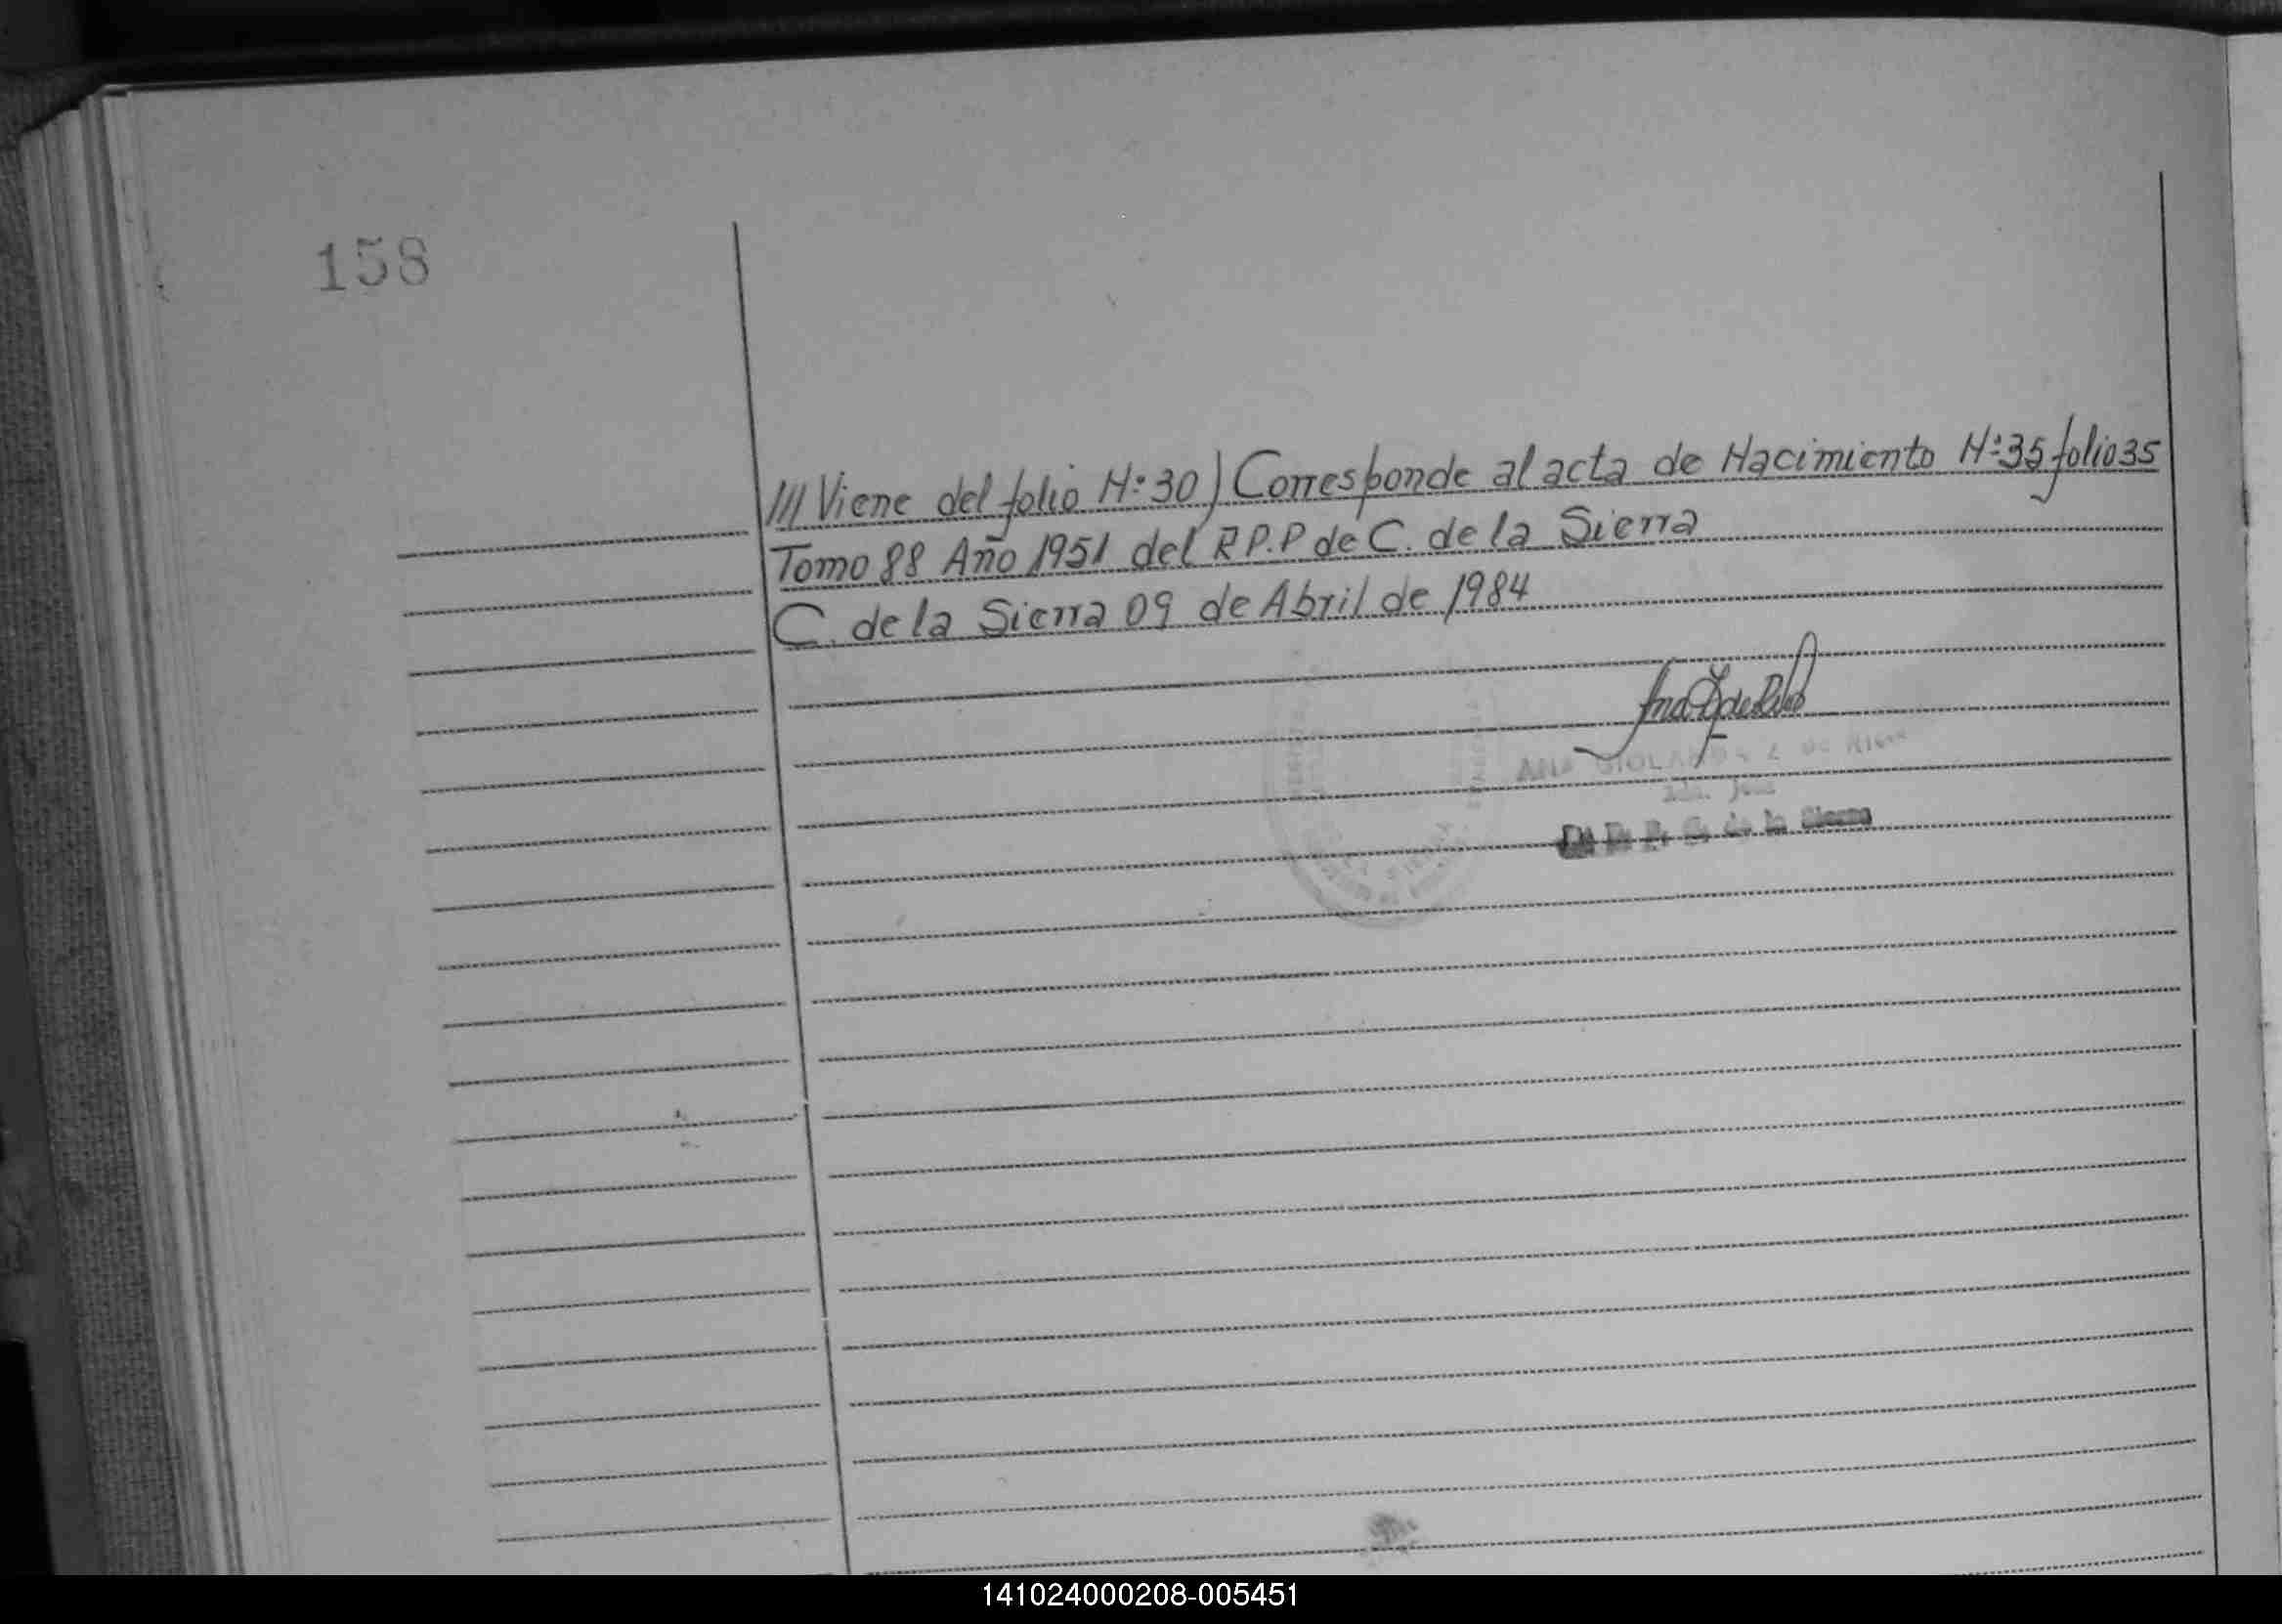 158
/// Viene del folio N:30) Corresponde al acta de Nacimiento Nº:35 folio 35
Tomo 88 Año 1951 del R P.P de C. de la Sierra
C. de la Sierra 09 de Abril de 1984
ANA
C. de la Sierra
141024000208-005451